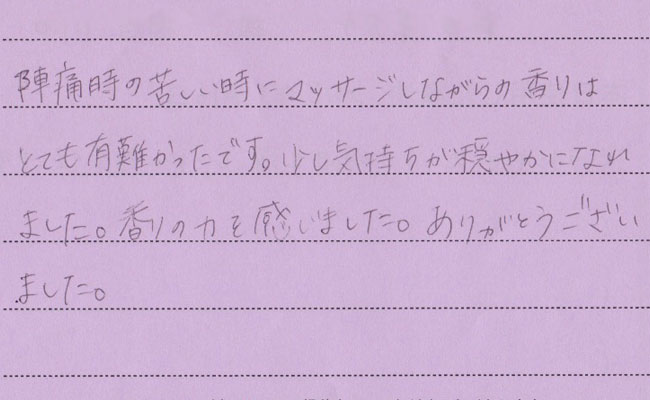 陣痛時の苦しい時にマッサージしながらの香りは
とても有難かったです。少し気持ちが穏やかになれ
ました。香りの力を感じました。ありがとうござい
ました。